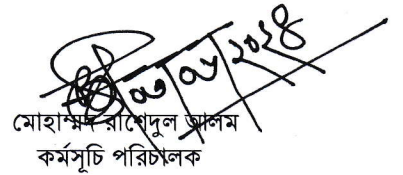 ০৩/০৬/২০২৪
মোহাম্মদ রাশেদুল আলম
কর্মসূচি পরিচালক